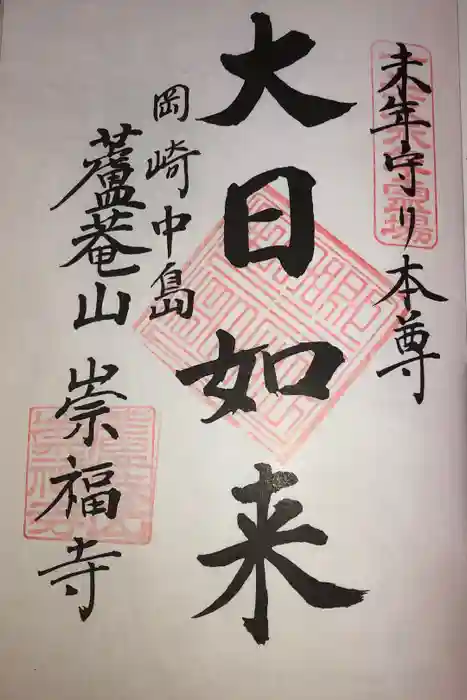 未年守り本尊
大日如来
岡崎中島
蘆菴山
崇福寺